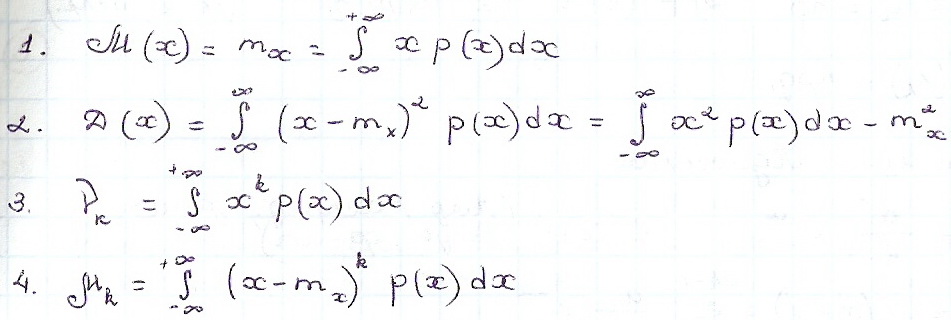 1. M(x) = mₓ = ∫₋∞⁺∞ x p(x)dx
2. D(x) = ∫₋∞^∞ (x − mₓ)² p(x)dx = ∫₋∞^∞ x² p(x)dx − mₓ²
3. νₖ = ∫₋∞⁺∞ xᵏ p(x)dx
4. μₖ = ∫₋∞⁺∞ (x − mₓ)ᵏ p(x)dx